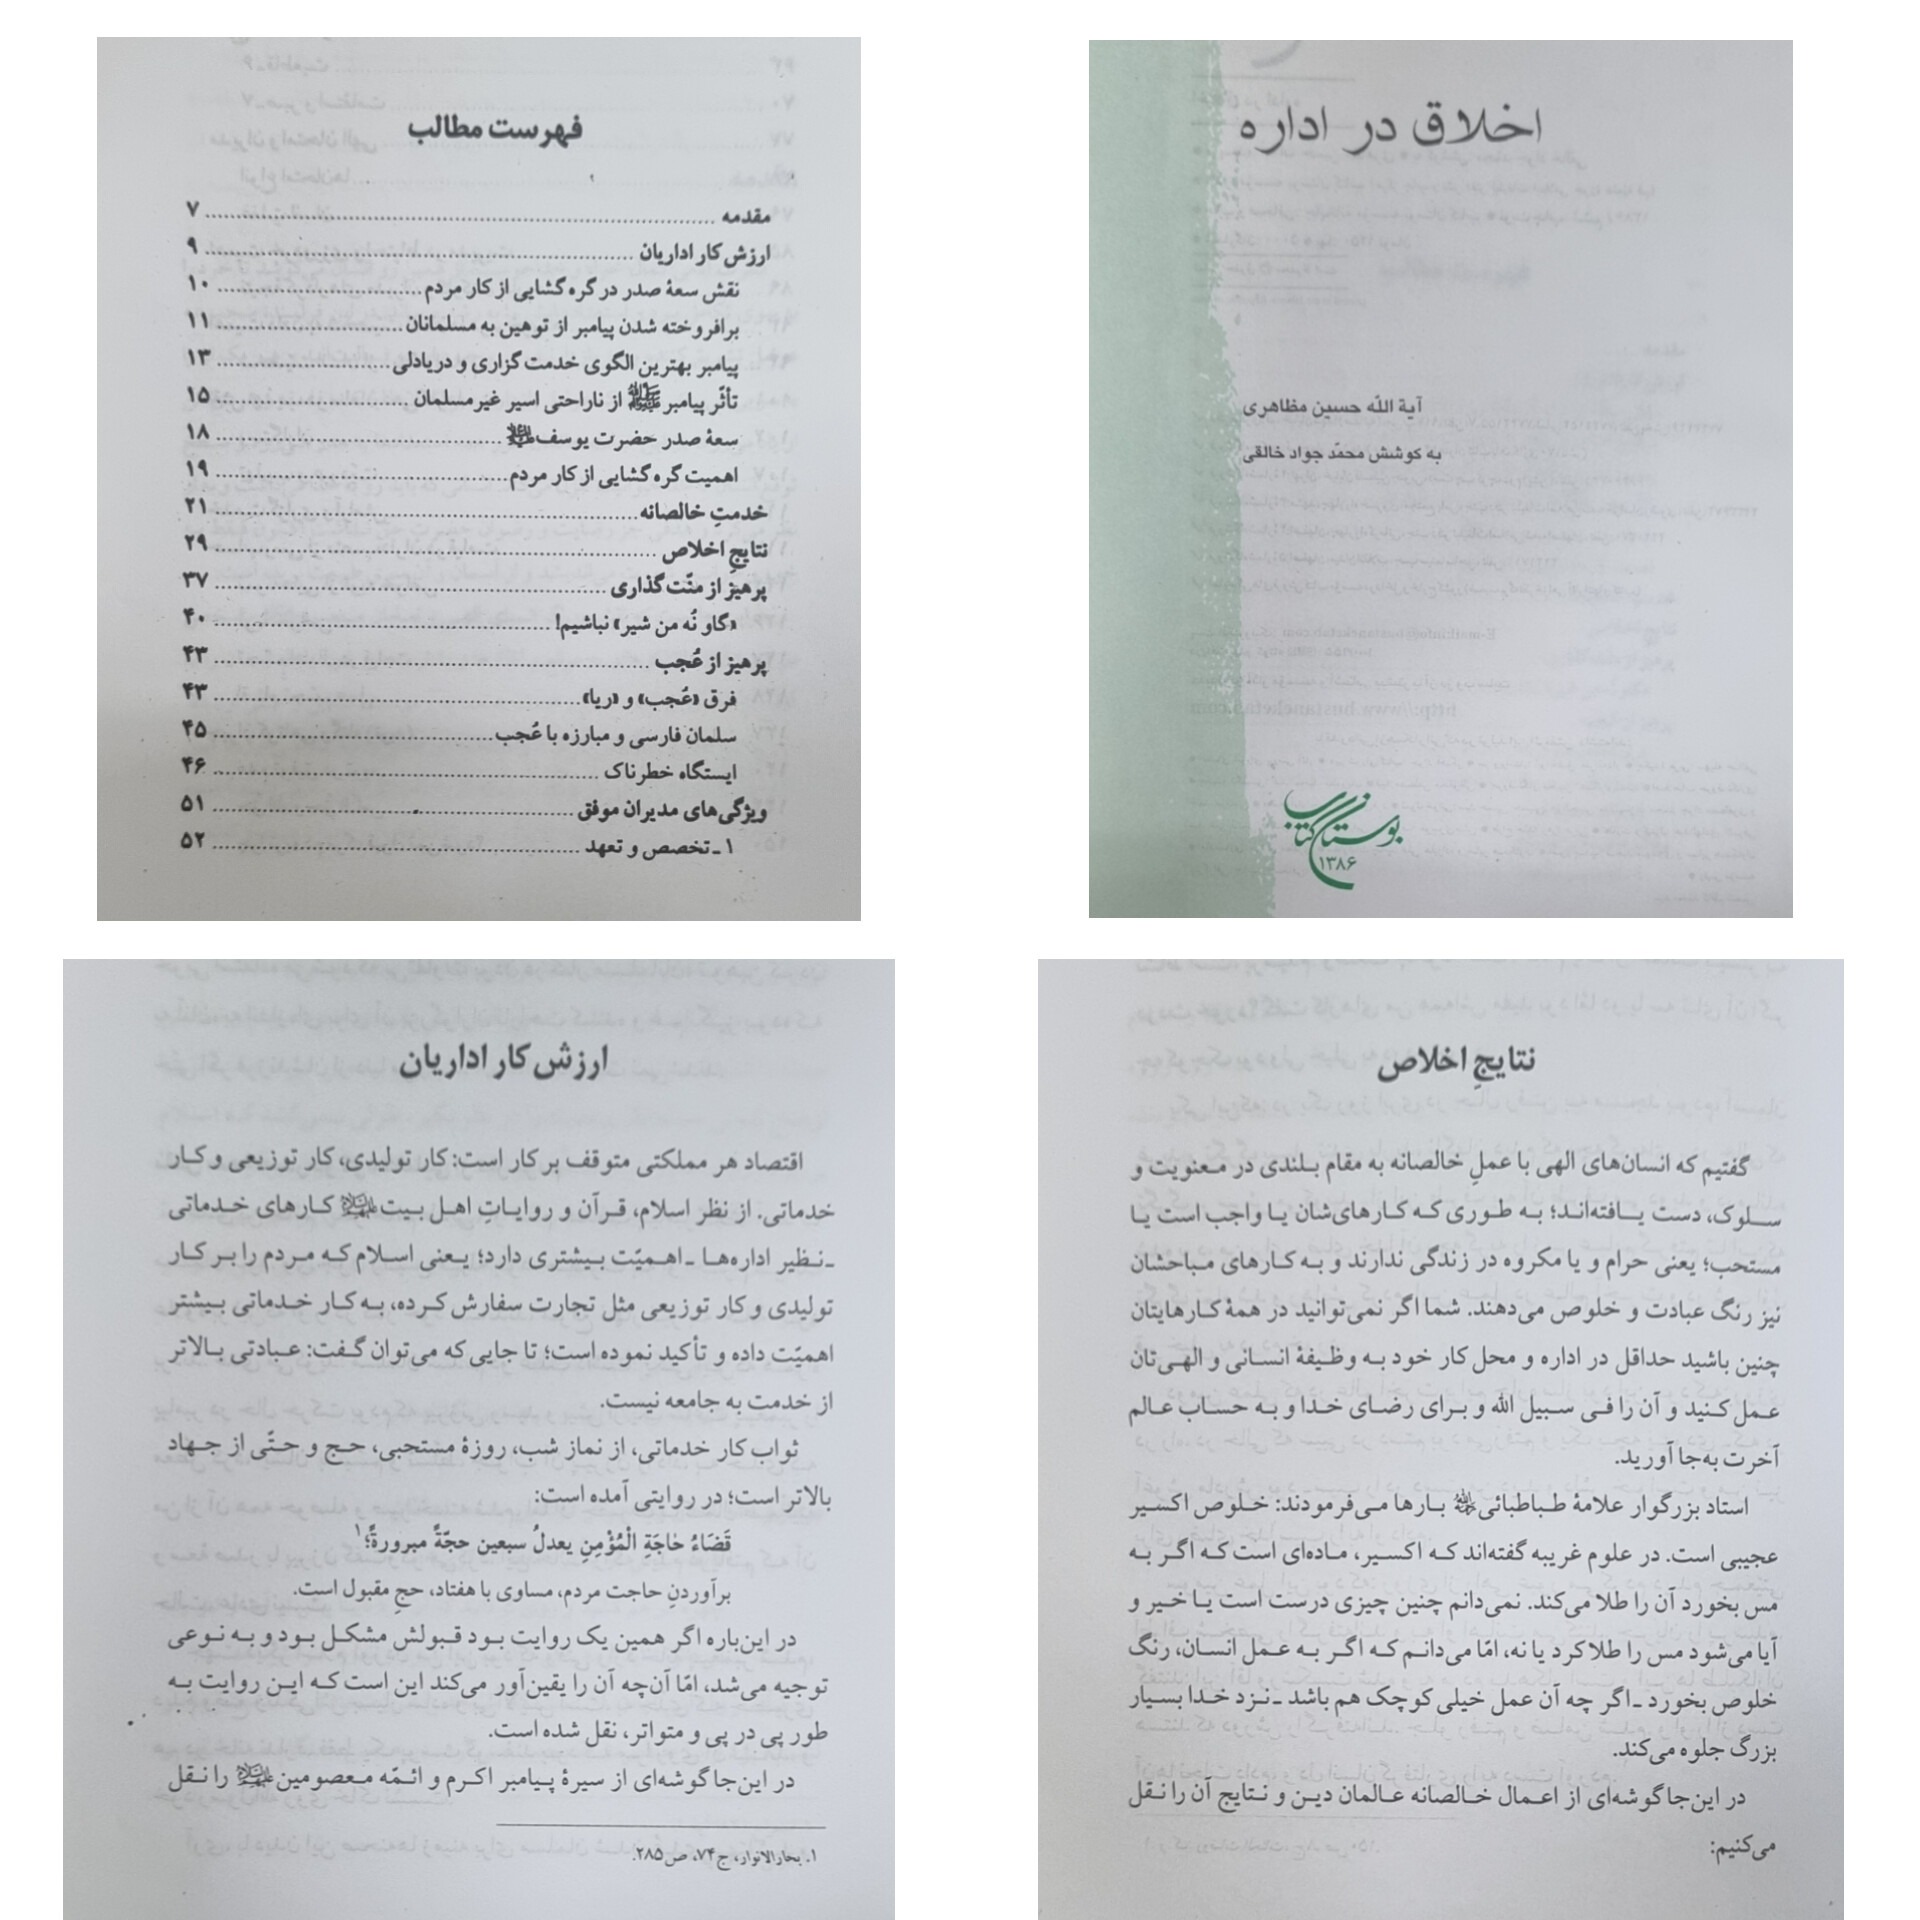 اخلاق در اداره
آیة الله حسین مظاهری
به کوشش محمّد جواد خالقی
بوستان کتاب
۱۳۸۶
فهرست مطالب
مقدمه ........ ۷
ارزش کار اداریان ........ ۹
نقش سعهٔ صدر در گره گشایی از کار مردم ........ ۱۰
برافروخته شدن پیامبر از توهین به مسلمانان ........ ۱۱
پیامبر بهترین الگوی خدمت گزاری و دریادلی ........ ۱۳
تأثّر پیامبرﷺ از ناراحتی اسیر غیرمسلمان ........ ۱۵
سعهٔ صدر حضرت یوسف ........ ۱۸
اهمیت گره گشایی از کار مردم ........ ۱۹
خدمتِ خالصانه ........ ۲۱
نتایجِ اخلاص ........ ۲۹
پرهیز از منّت گذاری ........ ۳۷
«گاو نُه من شیر» نباشیم! ........ ۴۰
پرهیز از عُجب ........ ۴۳
فرق «عُجب» و «ریا» ........ ۴۳
سلمان فارسی و مبارزه با عُجب ........ ۴۵
ایستگاه خطرناک ........ ۴۶
ویژگی‌های مدیران موفق ........ ۵۱
۱ ـ تخصص و تعهد ........ ۵۲
نتایجِ اخلاص
گفتیم که انسان‌های الهی با عملِ خالصانه به مقام بلندی در معنویت و
سلوک، دست یافته‌اند؛ به طوری که کارهای‌شان یا واجب است یا
مستحب؛ یعنی حرام و یا مکروه در زندگی ندارند و به کارهای مباحشان
نیز رنگ عبادت و خلوص می‌دهند. شما اگر نمی‌توانید در همهٔ کارهایتان
چنین باشید حداقل در اداره و محل کار خود به وظیفهٔ انسانی و الهی‌تان
عمل کنید و آن را فی سبیل الله و برای رضای خدا و به حساب عالم
آخرت به‌جا آورید.
استاد بزرگوار علامهٔ طباطبائی بارها می‌فرمودند: خلوص اکسیر
عجیبی است. در علوم غریبه گفته‌اند که اکسیر، ماده‌ای است که اگر به
مس بخورد آن را طلا می‌کند. نمی‌دانم چنین چیزی درست است یا خیر و
آیا می‌شود مس را طلا کرد یا نه، امّا می‌دانم که اگر به عمل انسان، رنگ
خلوص بخورد ـ اگر چه آن عمل خیلی کوچک هم باشد ـ نزد خدا بسیار
بزرگ جلوه می‌کند.
در این‌جا گوشه‌ای از اعمال خالصانه عالمان دین و نتایج آن را نقل
می‌کنیم:
ارزش کار اداریان
اقتصاد هر مملکتی متوقف بر کار است: کار تولیدی، کار توزیعی و کار
خدماتی. از نظر اسلام، قرآن و روایاتِ اهل بیت کارهای خدماتی
ـ نظیر اداره‌ها ـ اهمیّت بیشتری دارد؛ یعنی اسلام که مردم را بر کار
تولیدی و کار توزیعی مثل تجارت سفارش کرده، به کار خدماتی بیشتر
اهمیّت داده و تأکید نموده است؛ تا جایی که می‌توان گفت: عبادتی بالاتر
از خدمت به جامعه نیست.
ثواب کار خدماتی، از نماز شب، روزهٔ مستحبی، حج و حتّی از جهاد
بالاتر است؛ در روایتی آمده است:
قَضَاءُ حٰاجَةِ الْمُؤْمِنِ یعدلُ سبعین حجّةً مبرورةً؛۱
برآوردنِ حاجت مردم، مساوی با هفتاد، حجِ مقبول است.
در این‌باره اگر همین یک روایت بود قبولش مشکل بود و به نوعی
توجیه می‌شد، امّا آن‌چه آن را یقین‌آور می‌کند این است که این روایت به
طور پی در پی و متواتر، نقل شده است.
در این‌جا گوشه‌ای از سیرهٔ پیامبر اکرم و ائمّه معصومین را نقل
۱. بحارالانوار، ج۷۴، ص۲۸۵.